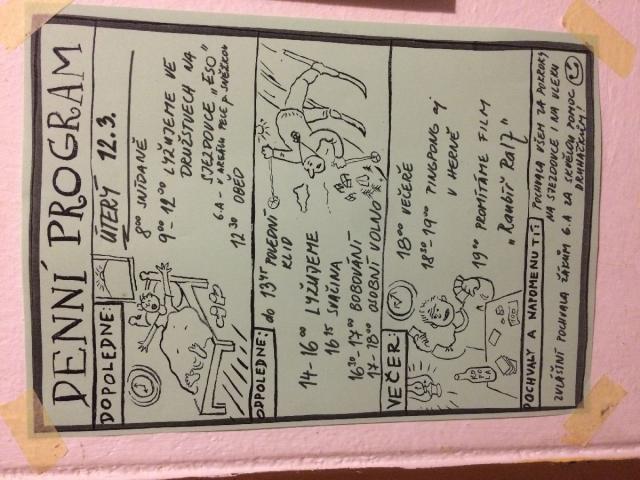 DENNÍ PROGRAM
DOPOLEDNE:
ÚTERÝ 12.3.
8⁰⁰ SNÍDANĚ
9⁰⁰-12⁰⁰ LYŽUJEME VE
DRUŽSTVECH NA
SJEZDOVCE "ESO"
6.A - V AREÁLU PECE p. SNĚŽKOU
12³⁰ OBĚD
ODPOLEDNE:
do 13⁴⁵ POLEDNÍ
KLID
14-16⁰⁰ LYŽUJEME
16¹⁵ SVAČINA
16³⁰-17⁰⁰ BOBOVÁNÍ
17-18⁰⁰ OSOBNÍ VOLNO
VEČER:
18⁰⁰ VEČEŘE
18³⁰-19⁰⁰ PINKPONG aj
V HERNĚ
19⁰⁰ PROMÍTÁME FILM
"Raubíř Ralf"
POCHVALY A NAPOMENUTÍ:
POCHVALA VŠEM ZA POKROKY
NA SJEZDOVCE I NA VLEKU
ZVLÁŠTNÍ POCHVALA ŽÁKŮM 6.A ZA SKVĚLOU POMOC
DRUHÁČKŮM!